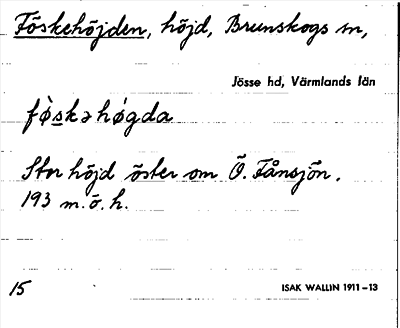 Föskehöjden, höjd, Brunskogs sn,
Jösse hd, Värmlands län
fø̀skəhǿgda
Stor höjd öster om Ö. Fånsjön.
193 m.ö.h.
15
ISAK WALLIN 1911–13